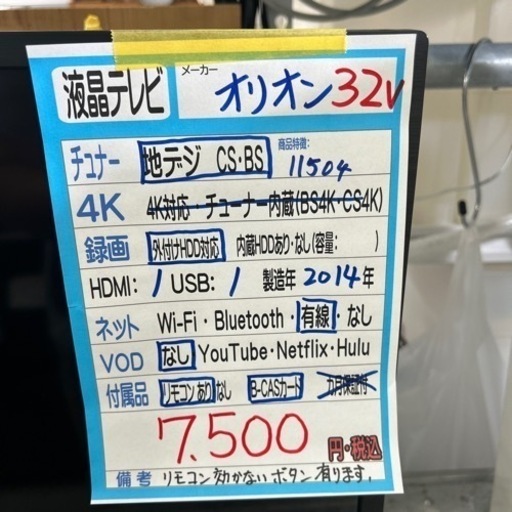 液晶テレビ メーカー オリオン32v
チュナー 地デジ CS・BS 商品特徴: 11504
4K 4K対応・チューナー内蔵(BS4K・CS4K)
録画 外付けHDD対応 内蔵HDDあり・なし(容量: )
HDMI: 1 USB: 1 製造年 2014年
ネット Wi-Fi・Bluetooth・有線・なし
VOD なし YouTube・Netflix・Hulu
付属品 リモコンあり なし B-CASカード カ月保証付
7.500 円・税込
備考 リモコン効かないボタン有ります。